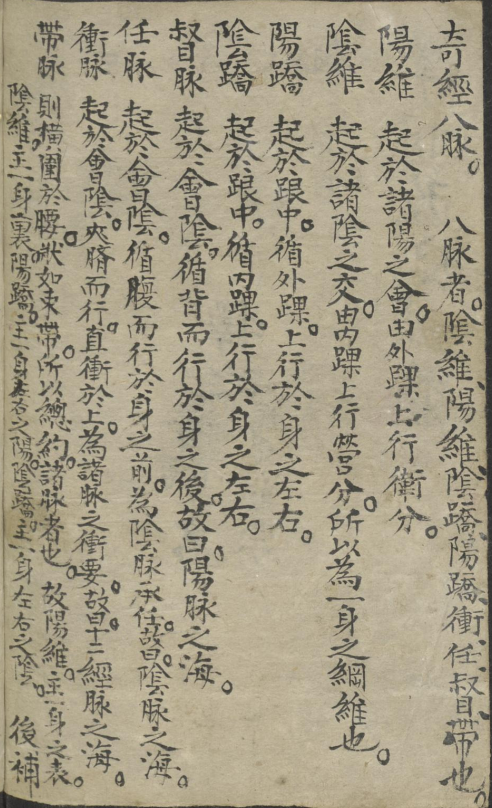 奇經八脉。 八脉者。陰維、陽維、陰蹻、陽蹻、衝、任、督、帶也。
陽維 起於諸陽之會。由外踝上行衛分。
陰維 起於諸陰之交。由内踝上行營分。所以為一身之綱維也。
陽蹻 起於跟中。循外踝。上行於身之左右。
陰蹻 起於跟中。循内踝。上行於身之左右。
督脉 起於會陰。循背而行於身之後。故曰陽脉之海。
任脉 起於會陰。循腹而行於身之前。為陰脉承任。故曰陰脉之海。
衝脉 起於會陰。夾臍而行。直衝於上。為諸脉之衝要。故曰十二經脉之海。
帶脉 則横圍於腰。狀如束帶。所以緫約諸脉者也。故陽維。主一身之表。
陰維。主一身裏。陽蹻。主一身左右之陽。陰蹻。主一身左右之陰。 後補